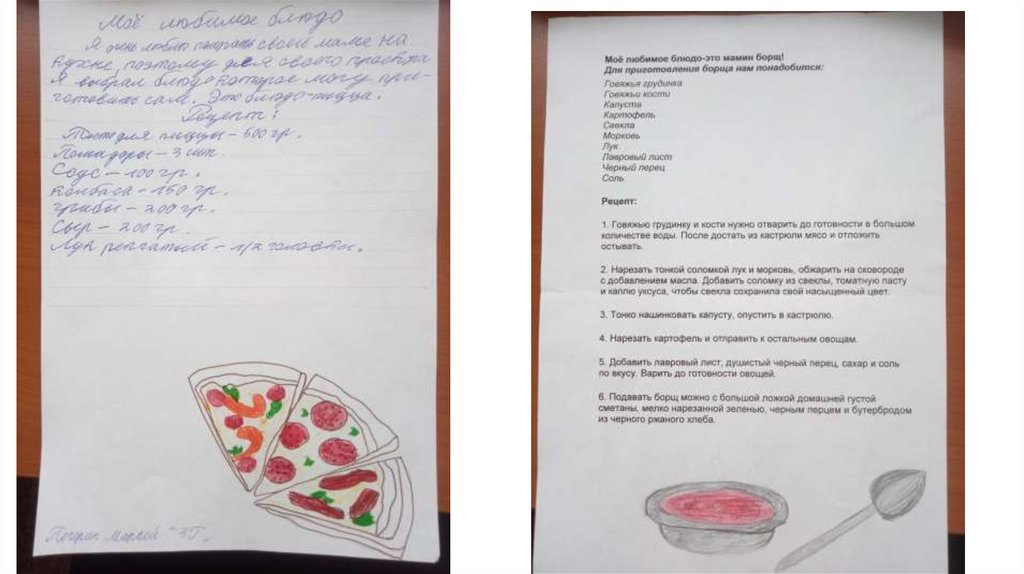 Моё любимое блюдо
Я очень люблю помогать своей маме на
кухне, поэтому для своего проекта
я выбрал блюдо которое могу при-
готовить сам. Это блюдо-пицца.
Рецепт:
Тесто для пиццы - 500 гр.
Помидоры - 3 шт.
Соус - 100 гр.
Колбаса - 150 гр.
Грибы - 200 гр.
Сыр - 200 гр.
Лук репчатый - 1/2 головки.
"3Г"
Моё любимое блюдо-это мамин борщ!
Для приготовления борща нам понадобится:
Говяжья грудинка
Говяжьи кости
Капуста
Картофель
Свекла
Морковь
Лук
Лавровый лист
Черный перец
Соль
Рецепт:
1. Говяжью грудинку и кости нужно отварить до готовности в большом
количестве воды. После достать из кастрюли мясо и отложить
остывать.
2. Нарезать тонкой соломкой лук и морковь, обжарить на сковороде
с добавлением масла. Добавить соломку из свеклы, томатную пасту
и каплю уксуса, чтобы свекла сохранила свой насыщенный цвет.
3. Тонко нашинковать капусту, опустить в кастрюлю.
4. Нарезать картофель и отправить к остальным овощам.
5. Добавить лавровый лист, душистый черный перец, сахар и соль
по вкусу. Варить до готовности овощей.
6. Подавать борщ можно с большой ложкой домашней густой
сметаны, мелко нарезанной зеленью, черным перцем и бутербродом
из черного ржаного хлеба.